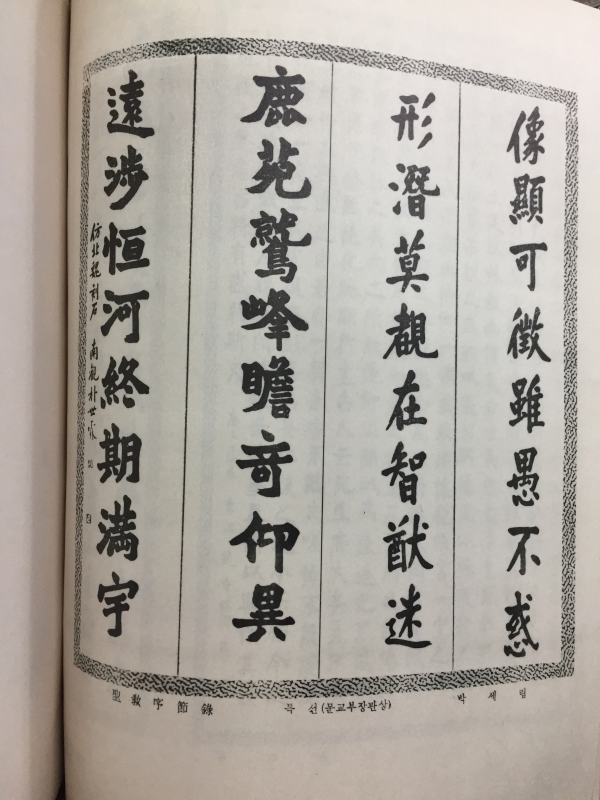 像顯可徵雖愚不惑
形潛莫覩在智猷迷
鹿苑鷲峰瞻奇仰異
遠涉恒河終期滿宇
仿北魏刻石 朴世
聖敎序節錄 특선(문교부장관상) 박세림